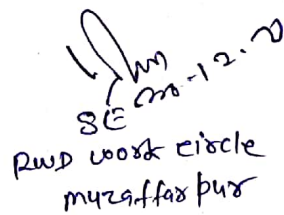 SE
RWD work circle
muzaffarpur